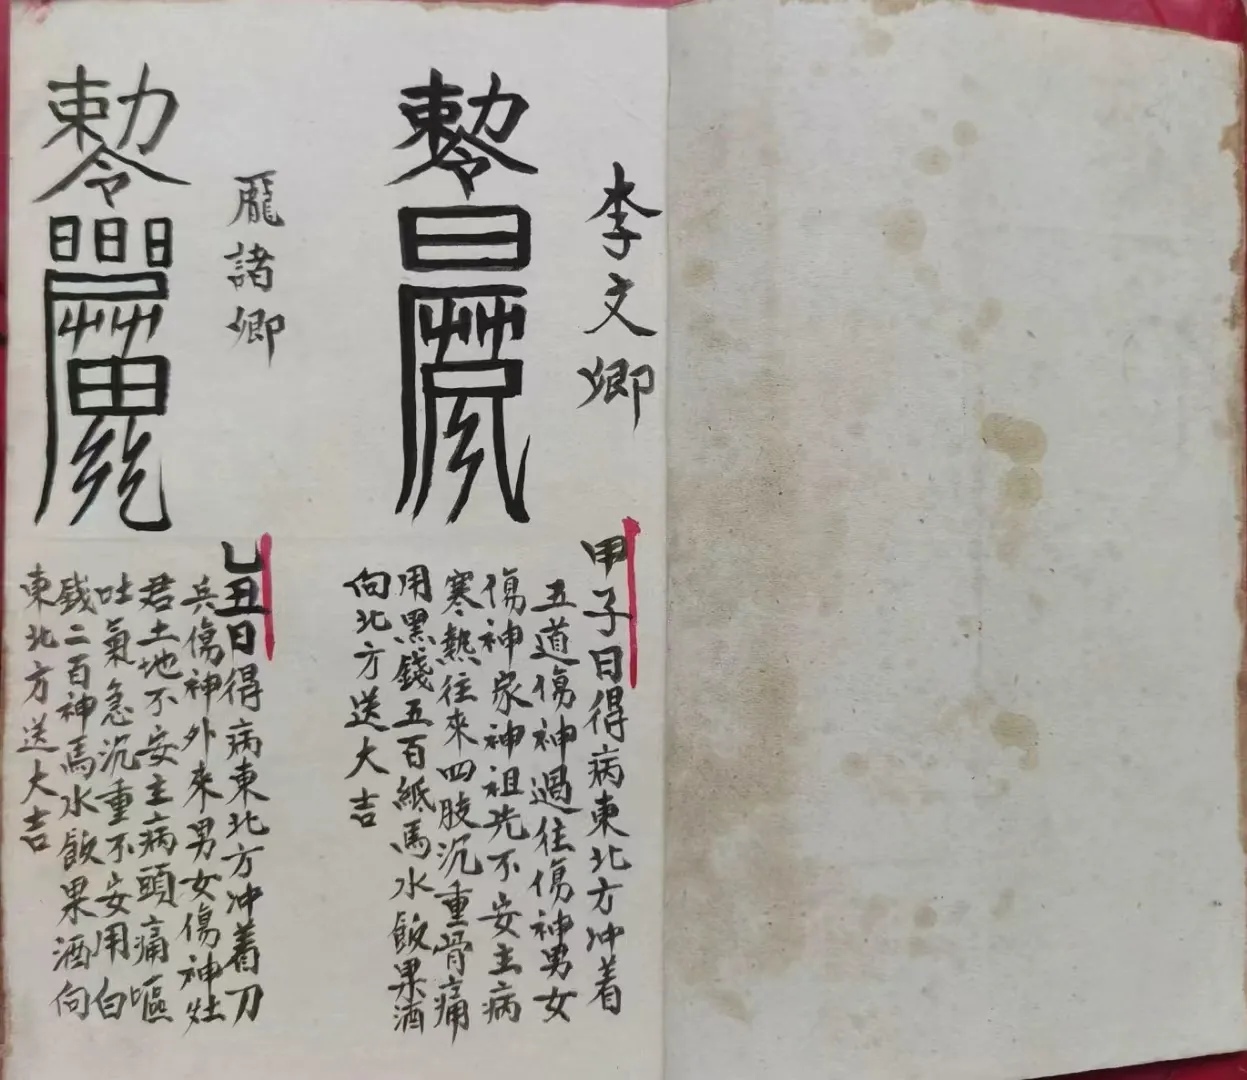 李文卿
勅令
甲子日得病東北方冲着
五道傷神過往傷神男女
傷神家神祖先不安主病
寒熱往來四肢沉重骨痛
用黑錢五百紙馬水飯果酒
向北方送大吉
龎諸卿
勅令
乚丑日得病東北方冲着刀
兵傷神外來男女傷神灶
君土地不安主病頭痛嘔
吐氣急沉重不安用白
錢二百神馬水飯果酒向
東北方送大吉